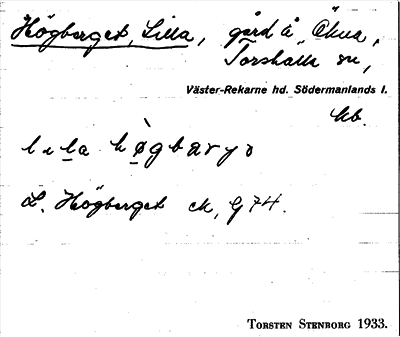 Högberget, Lilla, gård å Ökna,
Torshälla sn,
Väster-Rekarne hd. Södermanlands l.
kb.
lɩla høgbaryə
L. Högberget ek, G74.
TORSTEN STENBORG 1933.